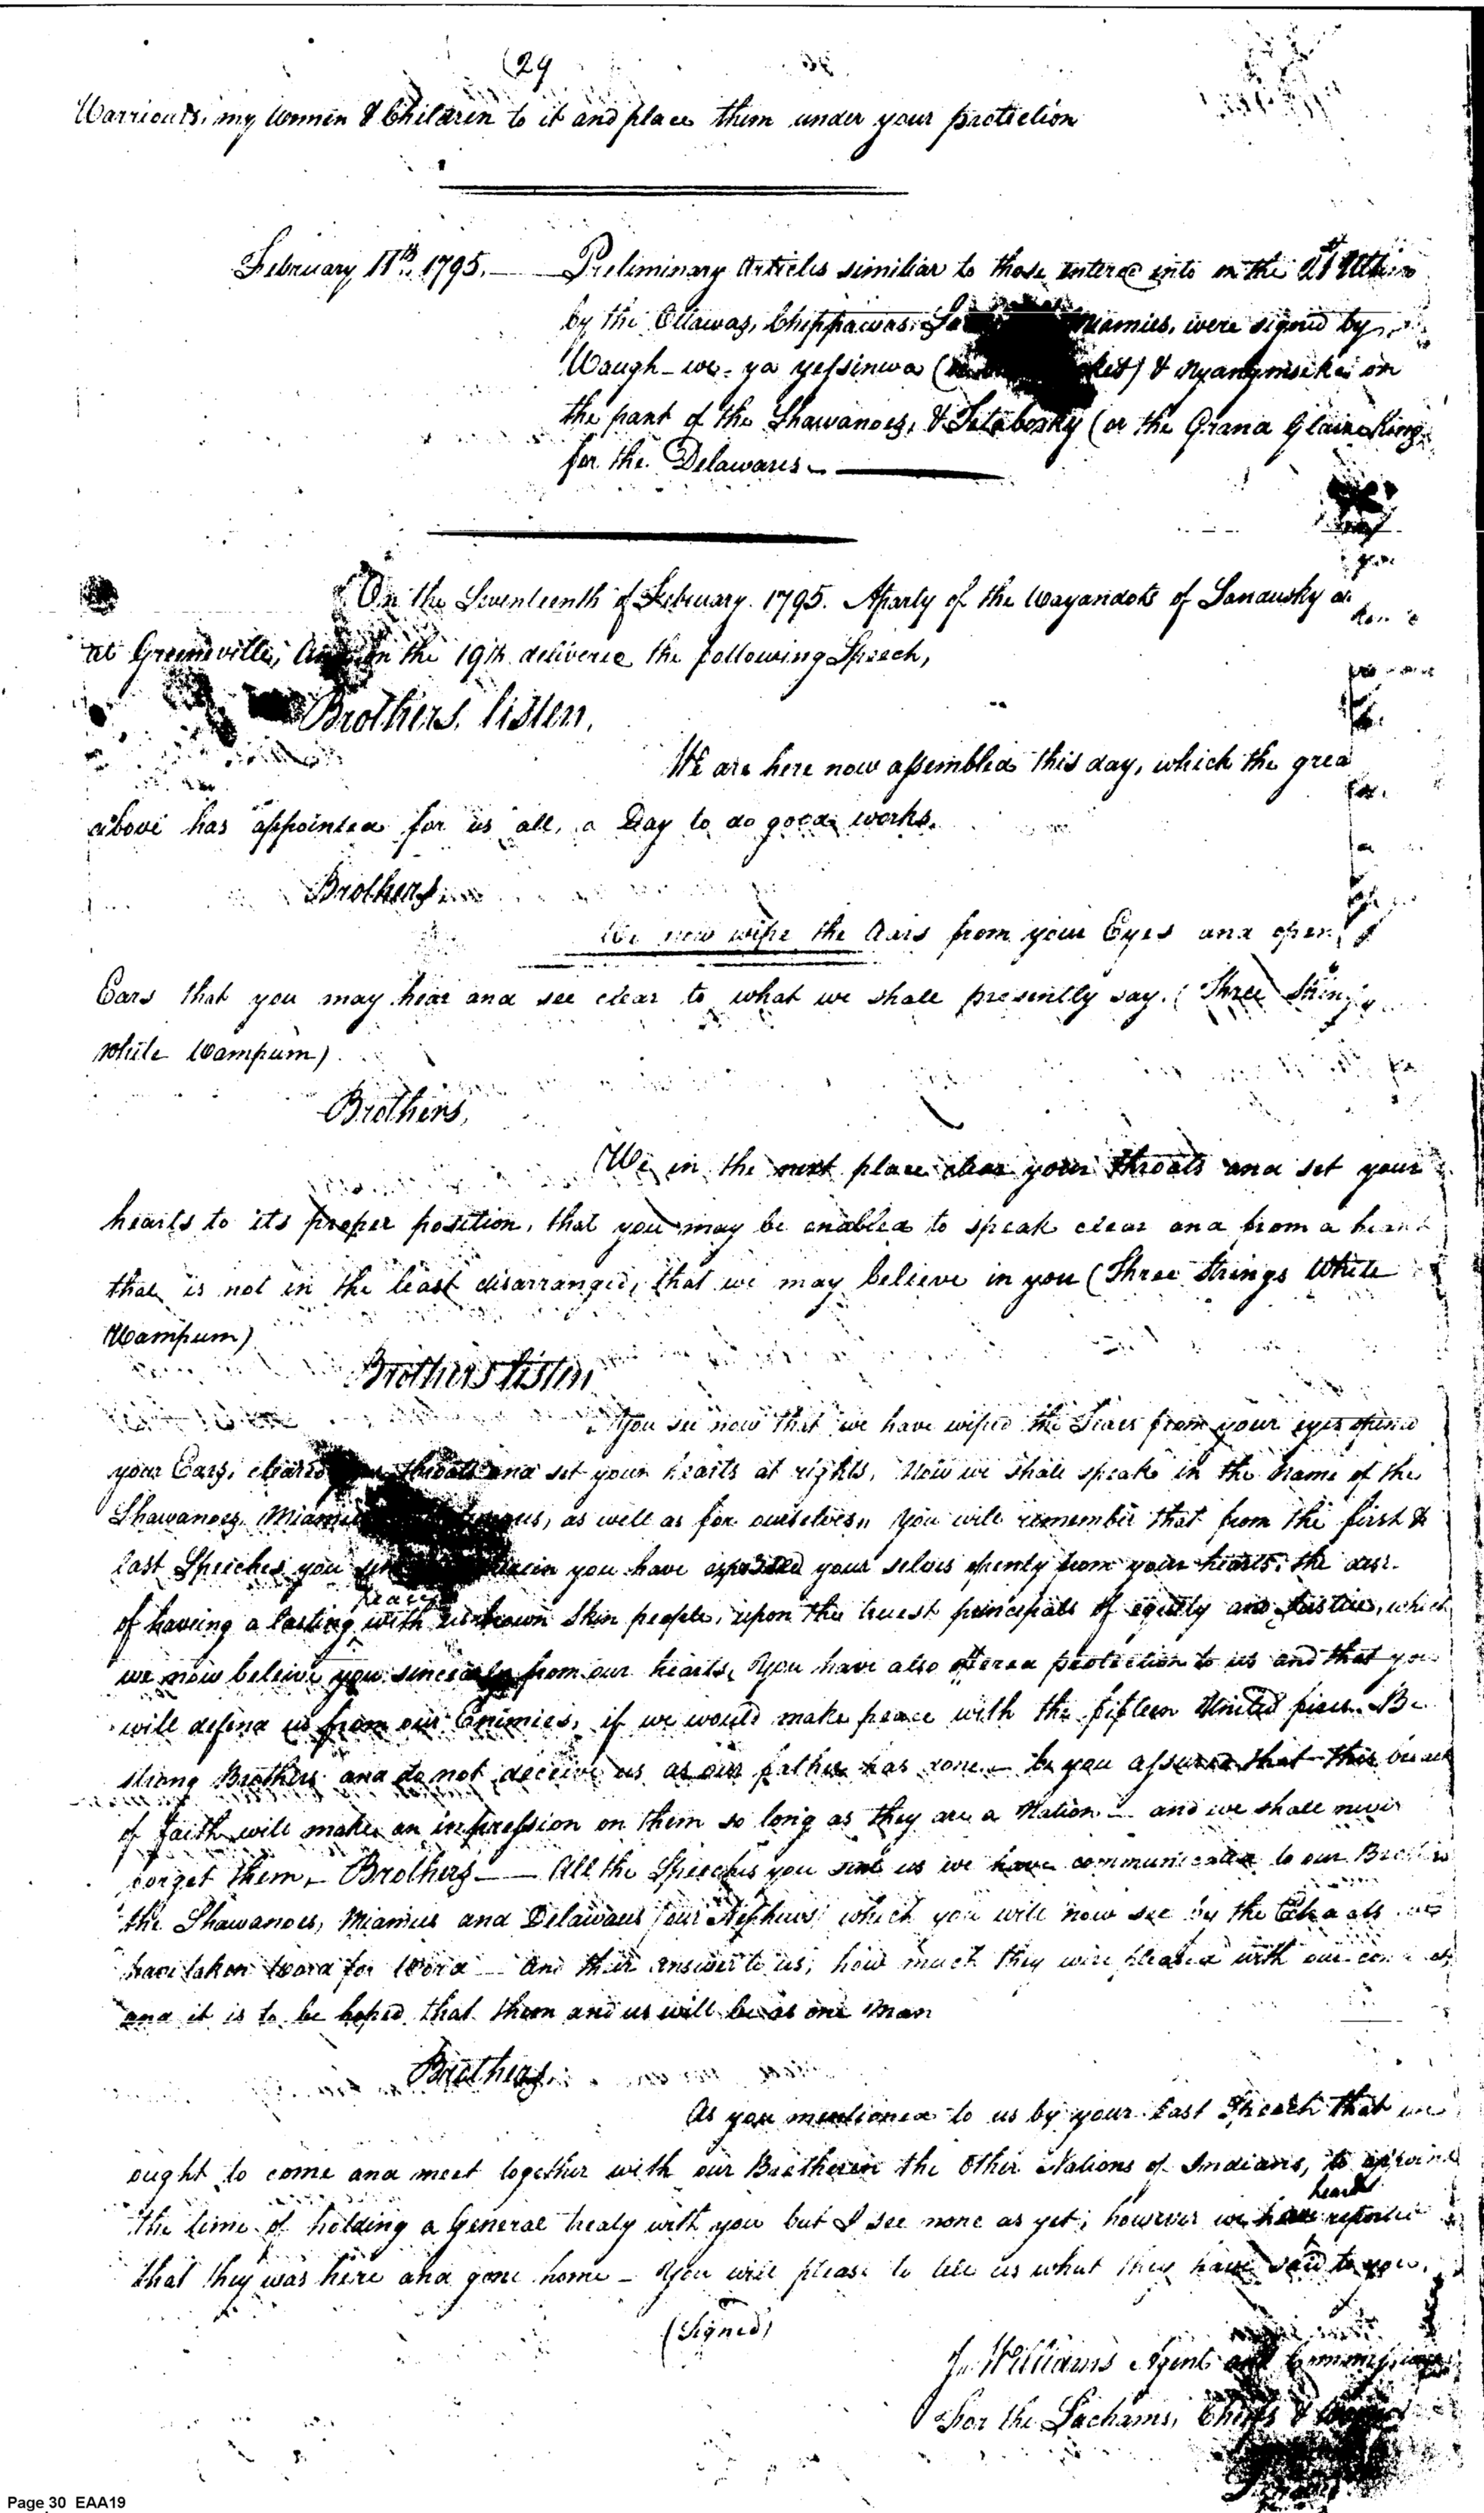 (29
Warriours, my Women & Children to it and place them under your protection
February 11th. 1795. — Preliminary Articles similiar to those entered into on the
by the Ottawas, Cheppawas, Miamies, were signed by
Waugh-we-ya yessinwa ( &
on
the part of the Shawanoes, & Tetabosky (or the Grand Glaize King
for the Delawares —
On the Seventeenth of February. 1795. A party of the Wayandots of Sandusky
at Greeneville, on the 19th delivered the following Speech,
Brothers, listen,
We are here now assembled this day, which the grea
above has appointed for us all, a Day to do good works.
Brothers
We now wipe the tears from your Eyes and open
Ears that you may hear and see clear to what we shall presently say. (Three Strings
white Wampum)
Brothers,
We in the next place clear your throats and set your
hearts to its proper position, that you may be enabled to speak clear and from a heart
that is not in the least disarranged, that we may believe in you (Three Strings White
Wampum)
Brothers listen
You see now that we have wiped the Tears from your eyes opened
your Ears, cleared throats and set your hearts at rights, Now we shall speak in the name of the
Shawanoes, as well as for ourselves, You will remember that from the first &
last Speeches you you have your selves openly from your hearts, the
peace
of having a lasting with us brown skin people, upon the truest principals of equity and Justice, which
we now beleive you sincearly from our hearts, You have also offered protection to us and that you
will defend us from our Enimies, if we would make peace with the fifteen United fires. Be
strong Brothers and do not deceive us as our father has done — be you assured that this breach
of faith will make an impression on them so long as they are a Nation — and we shall never
forget them, — Brothers — All the Speeches you sent us we have communicated to our Brothers
the Shawanoes, Miamies and Delawares (our Nephews) which you will now see by the
have taken word for Word — and their answer to us; how much they were pleased with our
and it is to be hoped that them and us will be as one Man
Brothers,
As you mentioned to us by your last Speech that we
ought to come and meet together with our Bretheren the Other Nations of Indians, to appoint
heard
the time of holding a General treaty with you but I see none as yet; however we have reported
that they was here and gone home — You will please to tell us what they have said to you.
(Signed)
Williams Agent and
For the Sachams, Chiefs &
Page 30 EAA19